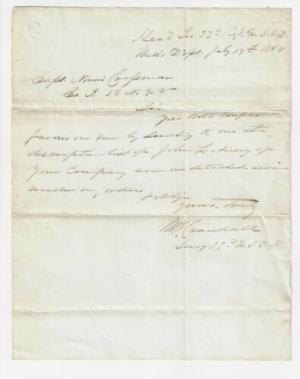 Head Qrs 33d U.S.C.T.
Dept. July 19th 1864
Capt. Norris Crossman
Co. I. 56 N.Y.V.
Sir
You will confer a
favor on me by sending to me the
descriptive list of John L. Avery of
Your Company now on detached service
under my orders
Yours Truly
M. Crandall
Surg 33d U.S.C.T.